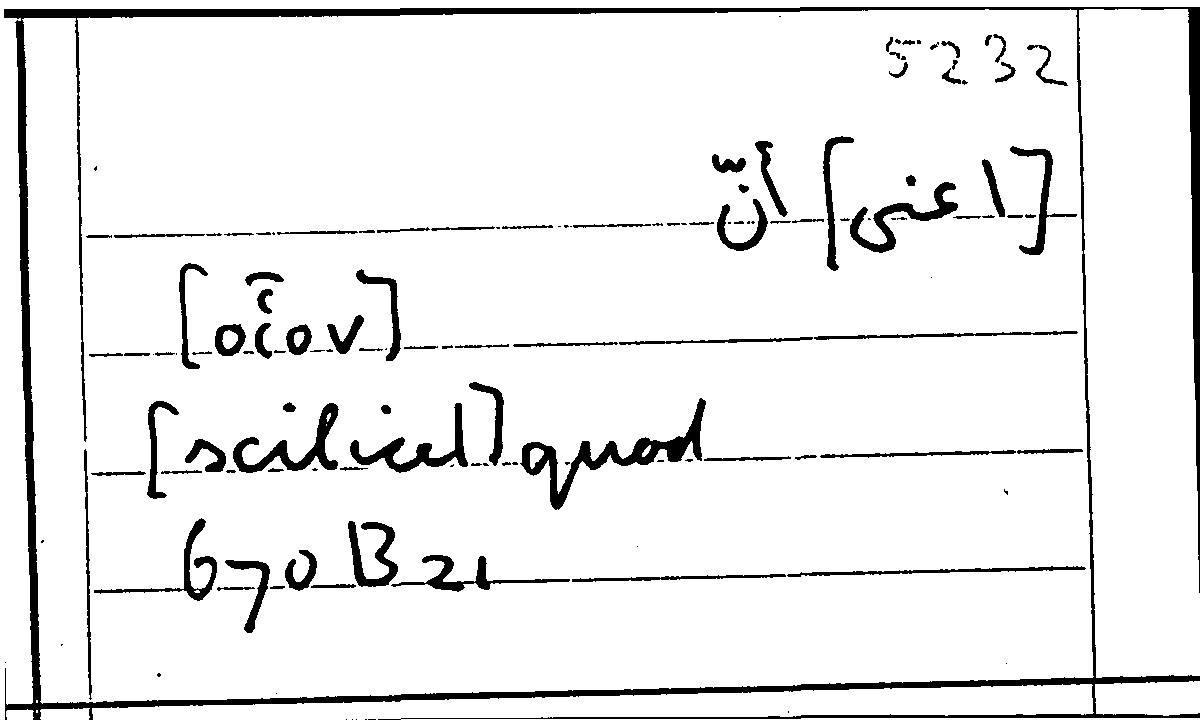 5232
[اعنى] أنّ
[οἷον]
[scilicet] quod
670 B 21